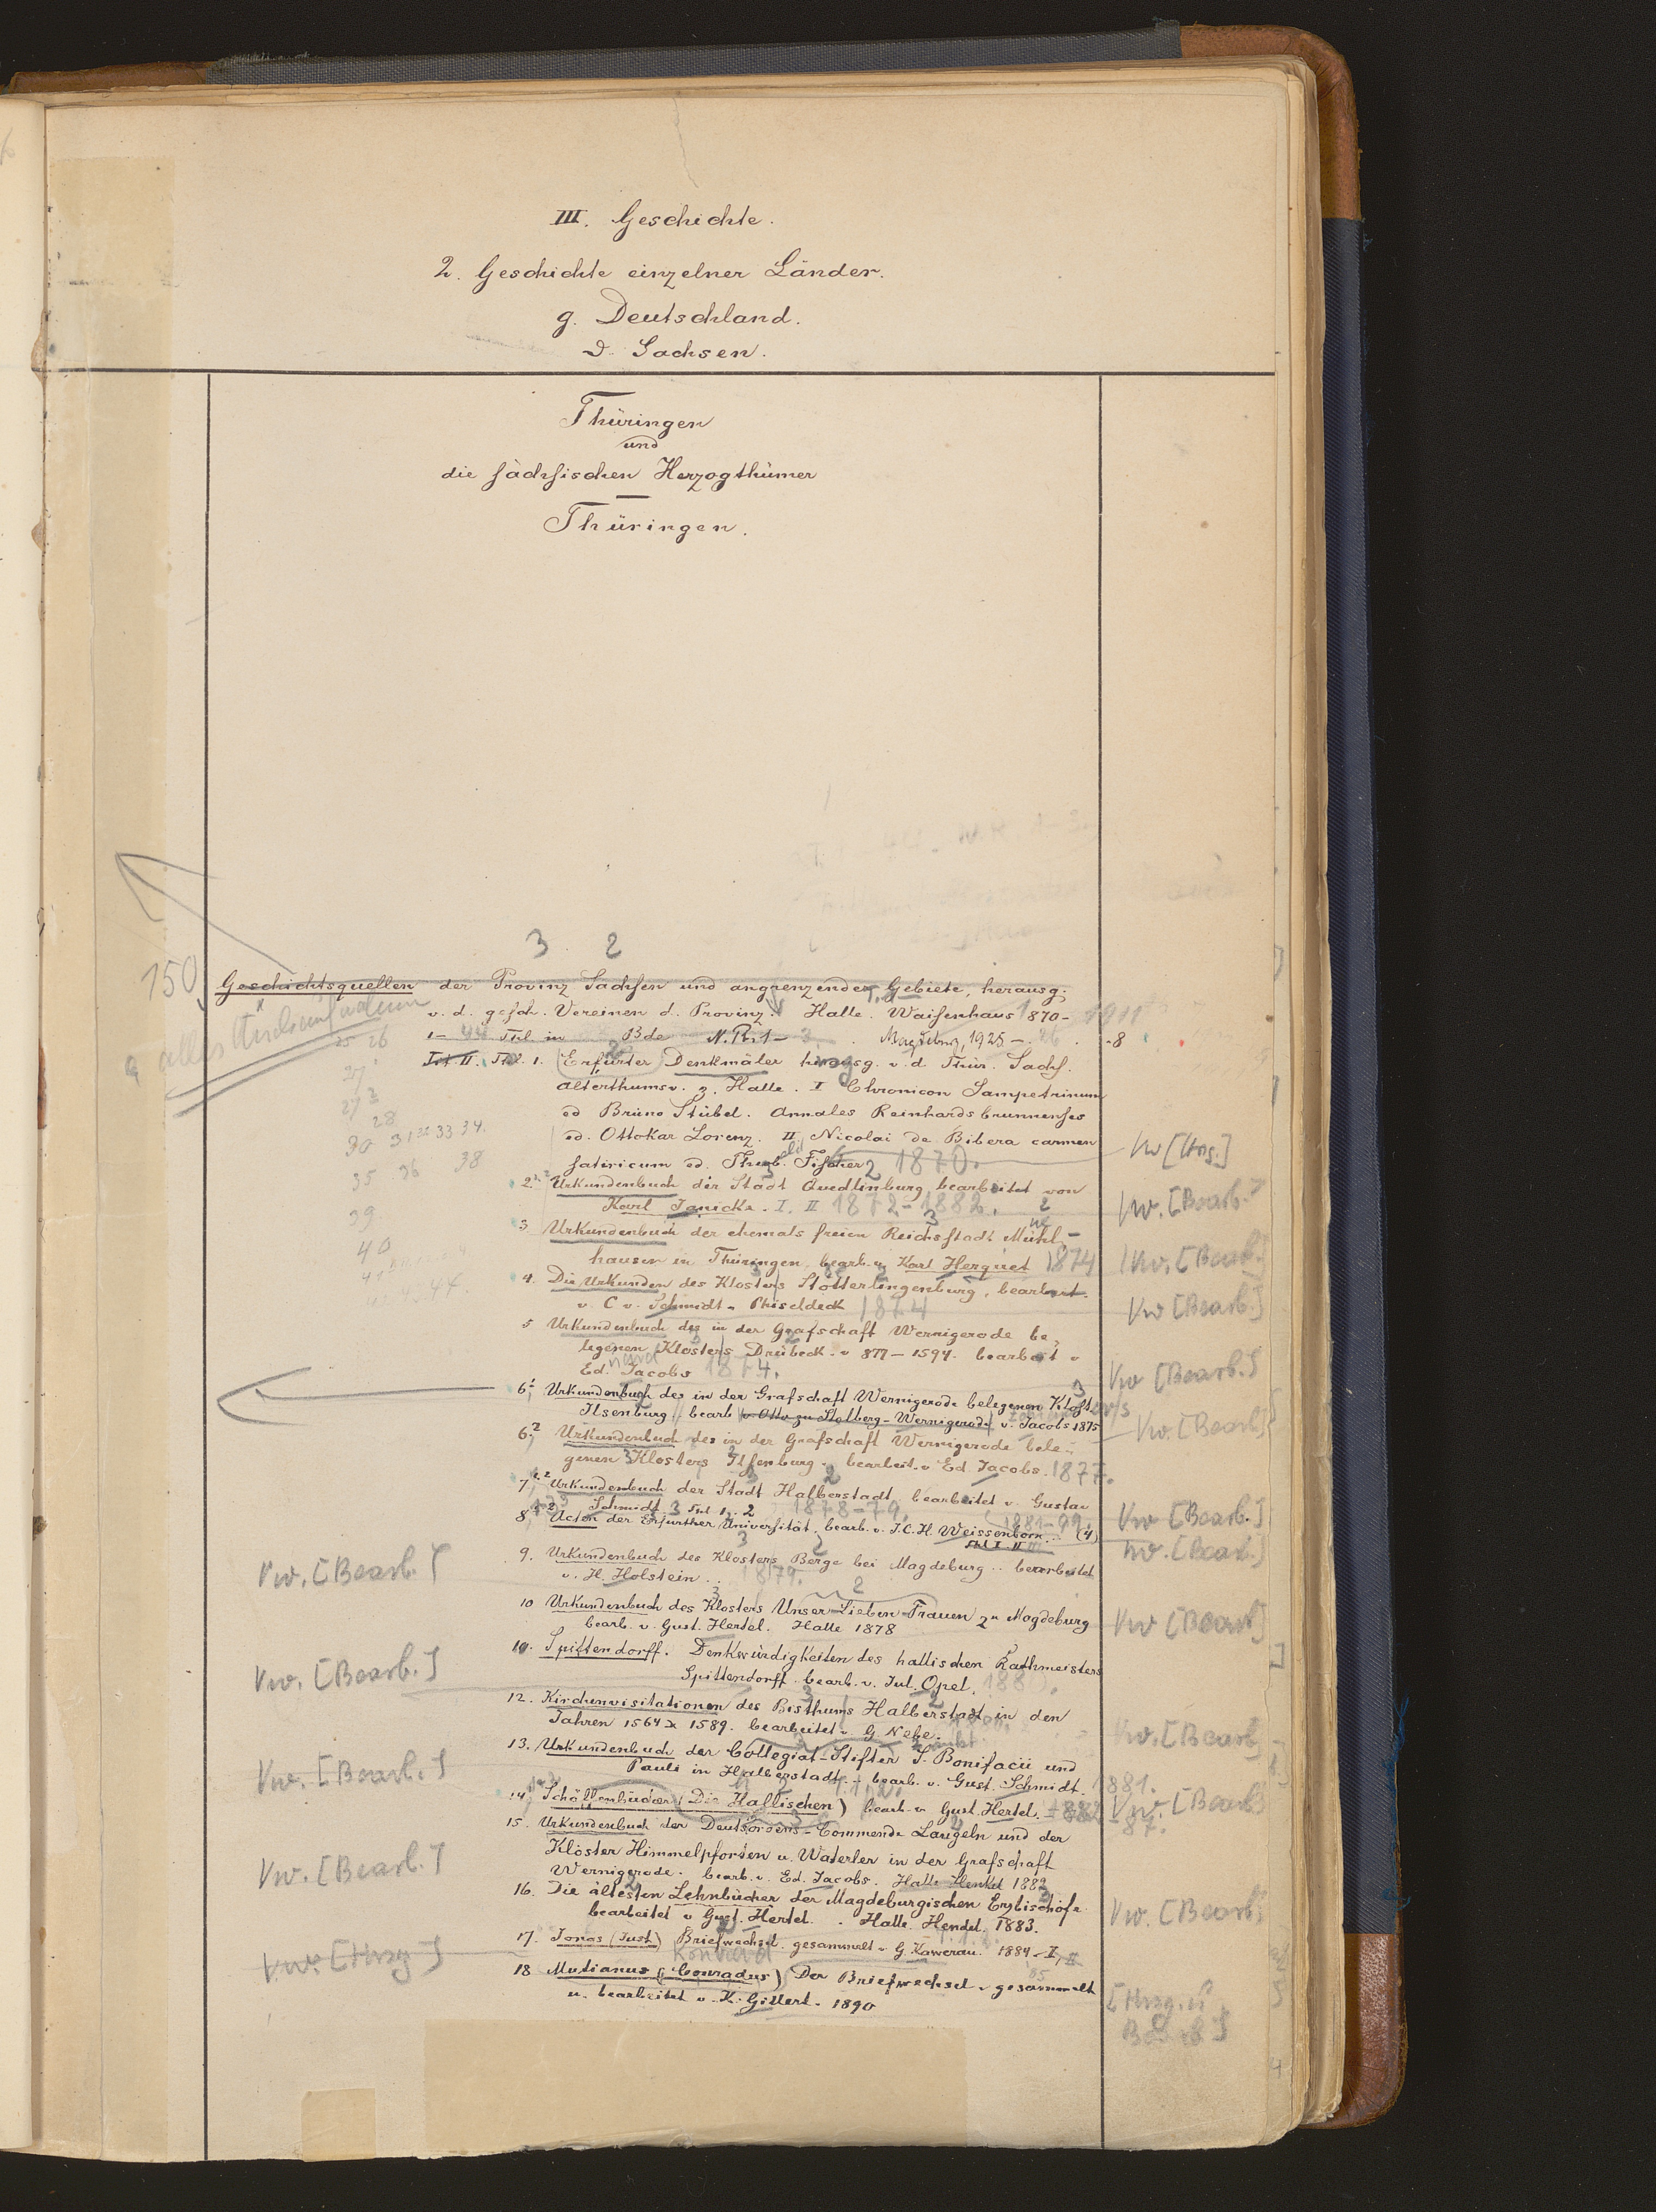 III. Geschichte.
2. Geschichte einzelner Länder.
g. Deutschland.
Sachsen.
Thüringen
und
die sächsischen Herzogthümer
Thüringen.
3 2
150
Geschichtsquellen der Provinz Sachsen und angrenzender Gebiete, herausg.
v. d. gesch. Vereinen d. Provinz. Halle. Waisenhaus 1870- 1911
1- Thl. in Bde Magdeburg, 1925- 26 . 8
Thl. 1. (Erfurter) Denkmäler herausg. v. d. Thür. Sächs.
Alterthumsv. z. Halle. I Chronicon Sampetrinum
ed Bruno Stübel. Annales Reinhardsbrunnenses
ed. Ottokar Lorenz. II Nicolai de Bibera carmen
satiricum ed. Theob. Fischer 1870.
2. Urkundenbuch der Stadt Quedlinburg bearbeitet von
Karl Janicke. I. II 1872-1882.
3 Urkundenbuch der ehemals freien Reichsstadt Mühl-
hausen in Thüringen, bearb. v. Karl Herquet 1874
4. Die Urkunden des Klosters Stötterlingenburg, bearbeit.
v. C v. Schmidt-Phiseldeck 1874
5 Urkundenbuch des in der Grafschaft Wernigerode be-
legenen Klosters Drübeck. v 877-1594. bearbeit v
Ed. Jacobs 1874.
6,1 Urkundenbuch des in der Grafschaft Wernigerode belegenen Klosters
Ilsenburg bearb v. Otto zu Stolberg-Wernigerode v. Jacobs 1875
6,2 Urkundenbuch des in der Grafschaft Wernigerode bele-
genen Klosters Ilsenburg. bearbeit. v Ed. Jacobs. 1877.
7, Urkundenbuch der Stadt Halberstadt, bearbeitet v. Gustav
Schmidt Thl. 1. 2 1878-79.
8, Acten der Erfurther Universität, bearb. v. J. C. H. Weissenborn. 1881-99. (4)
9. Urkundenbuch des Klosters Berge bei Magdeburg .. bearbeitet
v. H. Holstein .. 1879.
10 Urkundenbuch des Klosters Unser Lieben Frauen zu Magdeburg
bearb. v. Gust. Hertel. Halle 1878
Spittendorff. Denkwürdigkeiten des hallischen Rathmeisters
Spittendorff bearb. v. Jul. Opel. 1880.
12. Kirchenvisitationen des Bisthums Halberstadt in den
Jahren 1564 1589. bearbeitet v. G Nebe.
13. Urkundenbuch der Collegiat-Stifter S. Bonifacii und
Pauli in Halberstadt .. bearb. v. Gust. Schmidt. 1881.
14 Schöffenbücher (Die Hallischen) bearb. v Gust. Hertel. 1882-87.
15. Urkundenbuch der Deutschordens-Commende Langeln und der
Klöster Himmelpforten u. Waterler in der Grafschaft
Wernigerode. bearb. v. Ed. Jacobs. Halle Hendel 1882
16. Die ältesten Lehnbücher der Magdeburgischen Erzbischöfe
bearbeitet v Gust. Hertel. . Halle. Hendel. 1883.
17. Jonas (Just.) Briefwechsel. gesammelt v G. Kawerau. 1884- I, II
Konrad
18 Mutianus (Conradus) Der Briefwechsel v gesammelt
u. bearbeitet v. K. Gillert. 1890
25 26
27
28
30 31 32 33 34.
35. 36 38
39.
40
Vw. [Bearb.]
Vw. [Bearb.]
Vw. [Bearb.]
Vw. [Bearb.]
Vw. [Hrsg]
Vw [Hrs.]
Vw. [Bearb.]
Vw. [Bearb.]
Vw [Bearb.]
Vw [Bearb.]
Vw. [Bearb]
Vw [Bearb.]
Vw. [Bearb.]
Vw [Bearb]
Vw. [Bearb]
Vw. [Bearb]
Vw. [Bearb]
[Hrsg. u
Bearb]